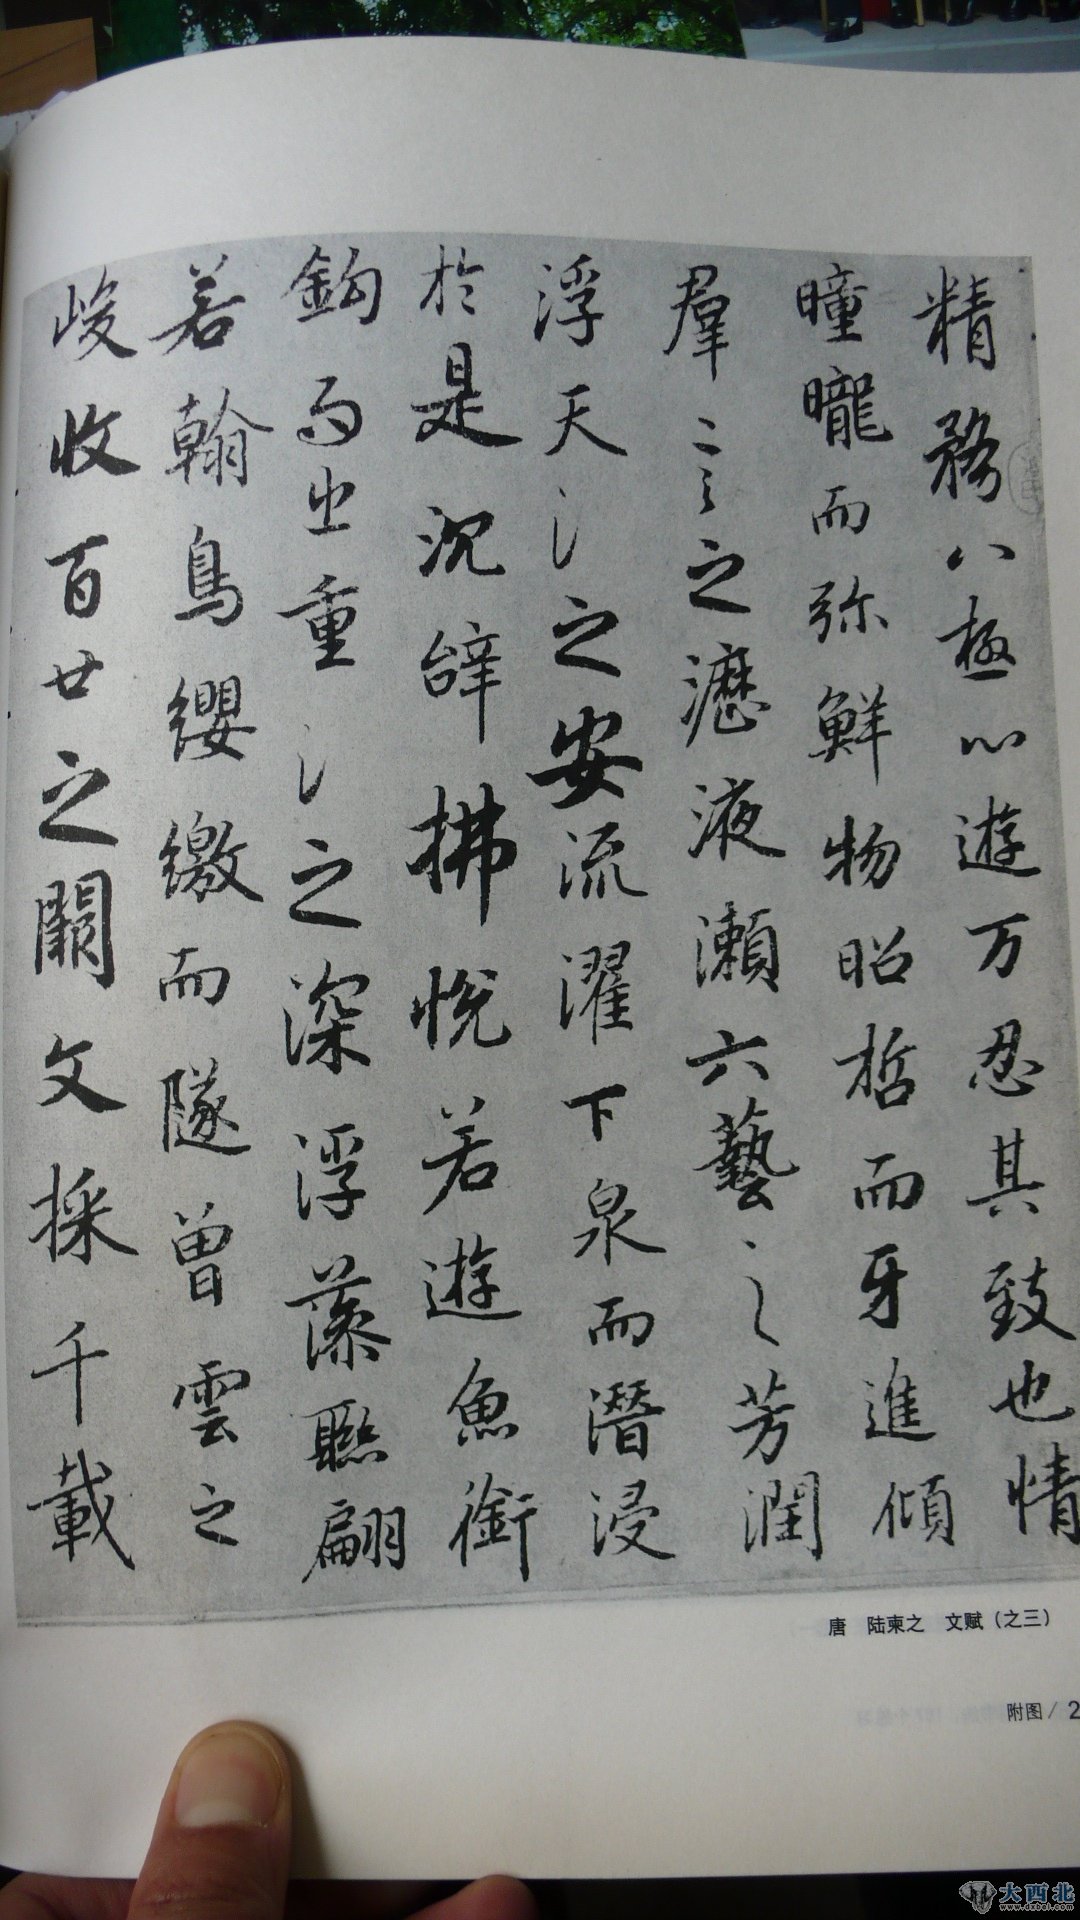 精務八極心遊万忍其致也情
曈曨而弥鮮物昭哲而牙進傾
羣言之瀝液瀨六藝之芳潤
浮天淵之安流濯下泉而潛浸
於是沉辝拂悅若遊魚銜
鈎而出重淵之深浮藻聯翩
若翰鳥纓繳而隧曾雲之
峻收百世之闕文採千載
唐 陆柬之 文赋（之三）
附图/2
大西北
www.dxbei.com